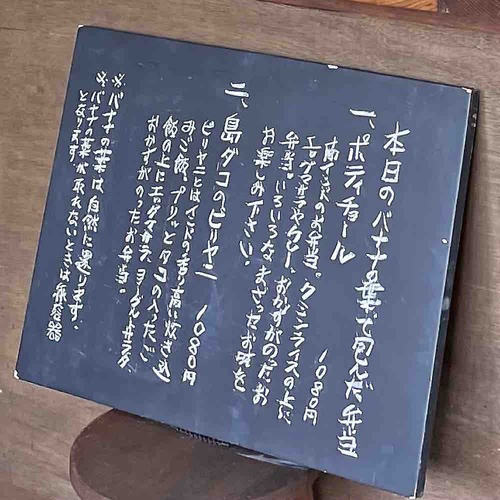 本日のバナナの葉で包んだ弁当
一、ポティチョール 1080円
南インドのお弁当。クミンライスの上に
エッグマサラやクロレ、おかずがのったお
弁当。いろいろなまざったお味を
お楽しみ下さい。
二、島ダコのビリヤニ 1080円
ビリヤニとはインドの香り高い炊き込
みご飯。プリッとタコの入ったご
飯の上にエッグマサラ、ヨーグルトサラダ、
おかずがのったお弁当。
※バナナの葉は自然に還ります。
※バナナの葉が取れないときは弁容器
となります。